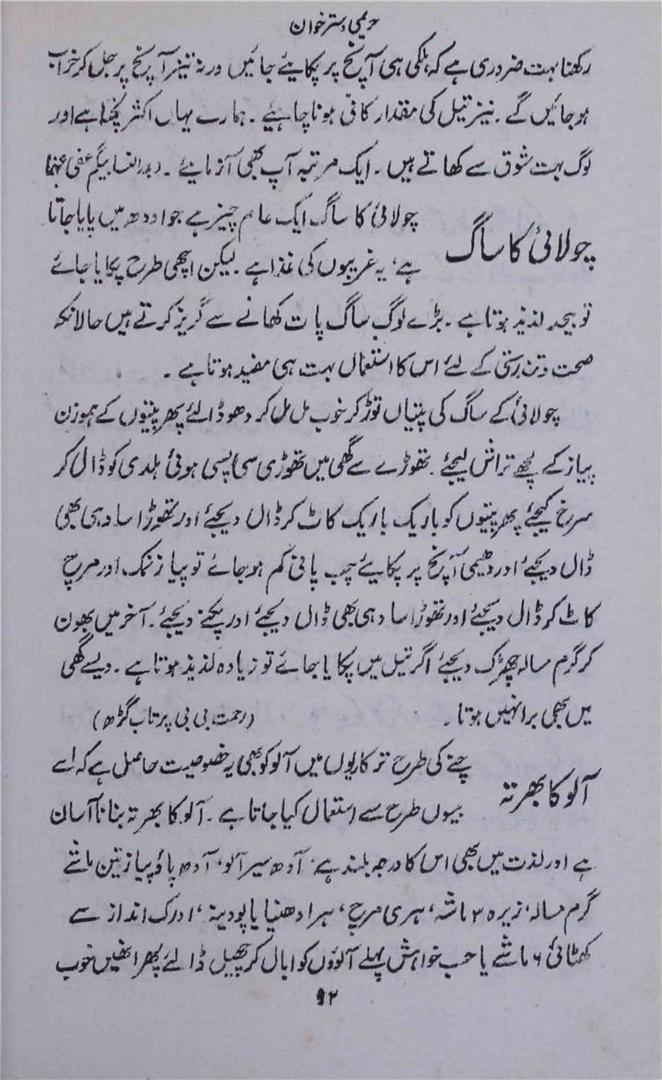 حریمی دسترخوان
رکھنا بہت ضروری ہے کہ ہلکی ہی آپنچ پر پکایئے جائیں ورنہ تیز آپنچ پر جل کر خراب
ہوجائیں گے ۔ نیز تیل کی مقدار کافی ہونا چاہیے ۔ ہمارے یہاں اکثر پکتا ہے اور
لوگ بہت شوق سے کھاتے ہیں ۔ ایک مرتبہ آپ بھی آزمایئے ۔ (بدرالنسا بیگم عفی عنہا
چولائی کا ساگ
چولائی کا ساگ ایک عام چیز ہے جو اودھ میں پایا جاتا
ہے، یہ غریبوں کی غذا ہے ۔ لیکن اچھی طرح پکایا جائے
تو بیحد لذیذ ہوتا ہے ۔ بڑے لوگ ساگ پات کھانے سے گریز کرتے ہیں حالانکہ
صحت وتندرستی کے لئے اس کا استعمال بہت ہی مفید ہوتا ہے ۔
چولائی کے ساگ کی پتیاں توڑ کر خوب مل مل کر دھو ڈالئے پھر پتیوں کے ہموزن
پیاز کے لچھے تراش لیجئے ۔ تھوڑے سے گھی میں تھوڑی سی پسی ہوئی ہلدی کو ڈال کر
سرخ کیجئے پھر پتیوں کو باریک باریک کاٹ کر ڈال دیجئے اور تھوڑا سا دہی بھی
ڈال دیجئے اور دھیمی آپنچ پر پکایئے جب پانی کم ہوجائے تو پیاز نمک اور مرچ
کاٹ کر ڈال دیجئے اور تھوڑا سا دہی بھی ڈال دیجئے اور پکنے دیجئے ۔ آخر میں بھون
کر گرم مسالہ چھڑک دیجئے اگر تیل میں پکایا جائے تو زیادہ لذیذ ہوتا ہے ۔ ویسے گھی
میں بھی برا نہیں ہوتا ۔ (رحمت بی بی پرتاب گڑھ)
آلو کا بھرتہ
چنے کی طرح ترکاریوں میں آلو کو بھی یہ خصوصیت حاصل ہے کہ اسے
بیسوں طرح سے استعمال کیا جاتا ہے ۔ آلو کا بھرتہ بنانا آسان
ہے اور لذت میں بھی اس کا درجہ بلند ہے، آدھ سیر آلو، آدھ پاؤ پیاز تین ماشے
گرم مسالہ، زیرہ ۳ ماشہ، ہری مرچ، ہرا دھنیا یا پودینہ، ادرک انداز سے
کھٹائی ۶ ماشے یا حسب خواہش پہلے آلوؤں کو ابال کر چھیل ڈالئے پھر انھیں خوب
۹۲